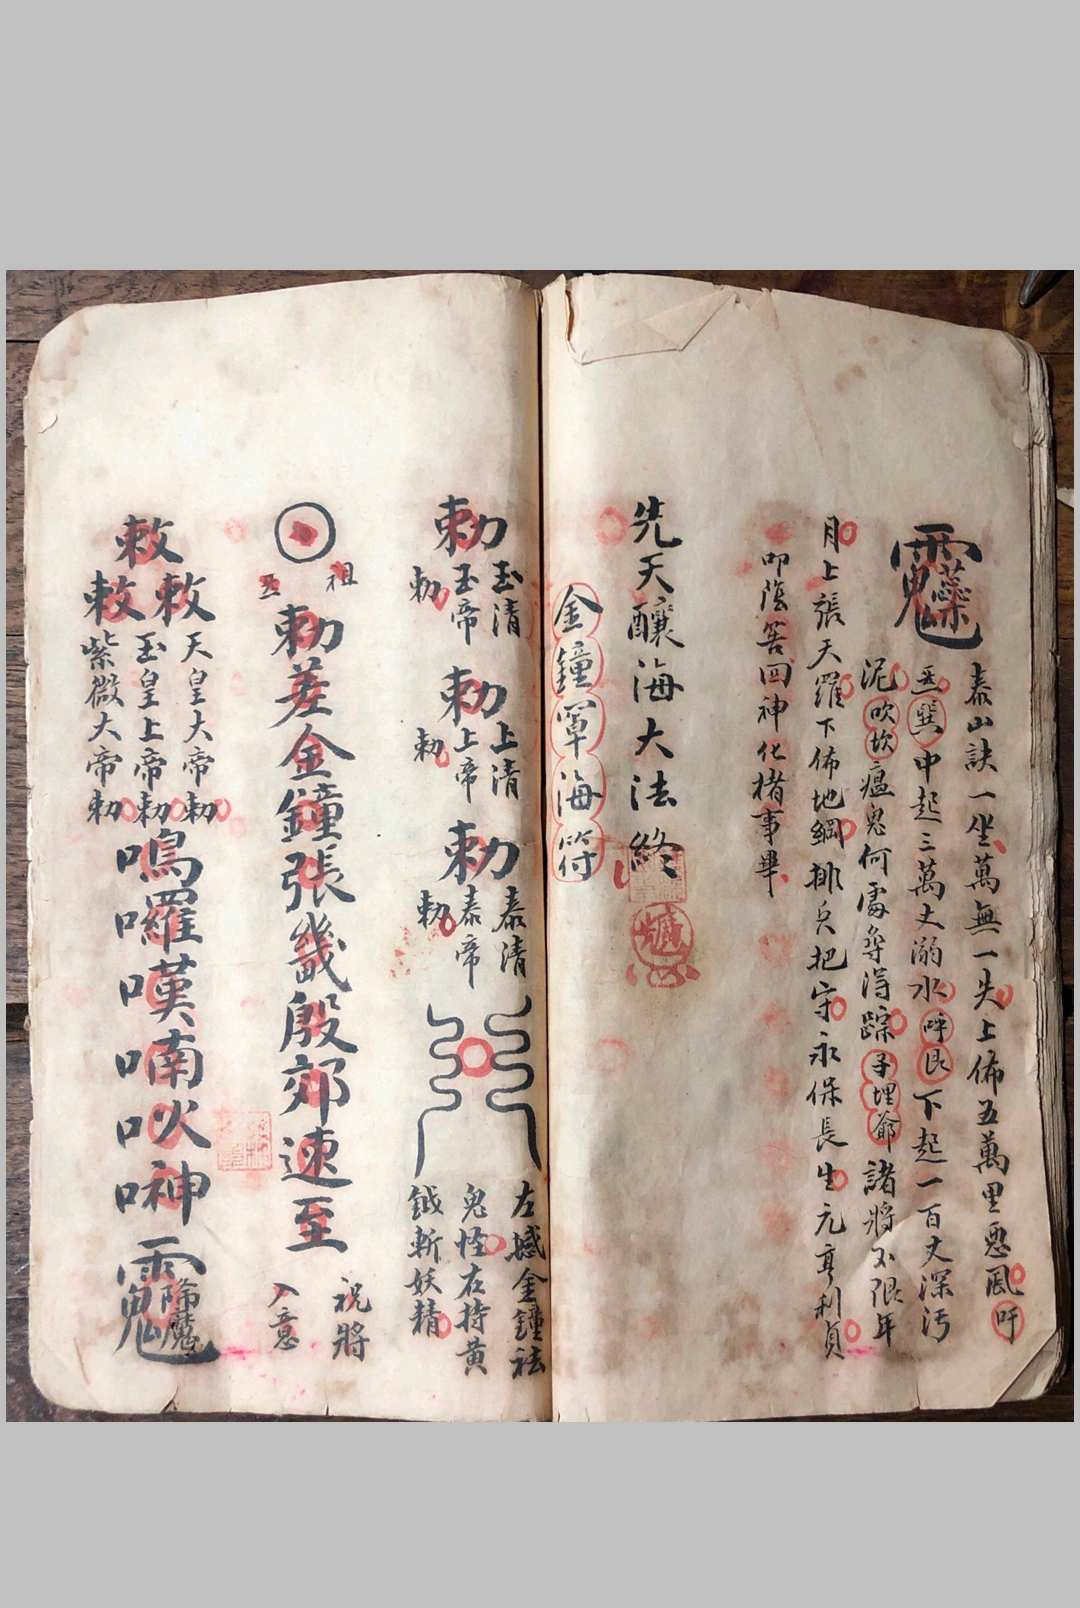 泰山訣一坐萬無一失上佈五萬里惡風吁
巽中起三萬丈溺水呼艮下起一百丈深污
泥吹坎瘟鬼何處尋得踪子埋爺諸將不限年
月上張天羅下佈地網排兵把守永保長生元亨利貞
叩陰筶回神化楮事畢
先天釀海大法終
金鐘罩海符
勅玉清玉帝勅 勅上清上帝勅 勅泰清泰帝勅
左撼金鐘祛
鬼怪右持黃
鉞斬妖精
祖
勅差金鐘張幾殷郊速至
祝將
入意
敕敕敕
天皇大帝勅
玉皇上帝勅
紫微大帝勅
鳴囉嘆喃吙神
降魔